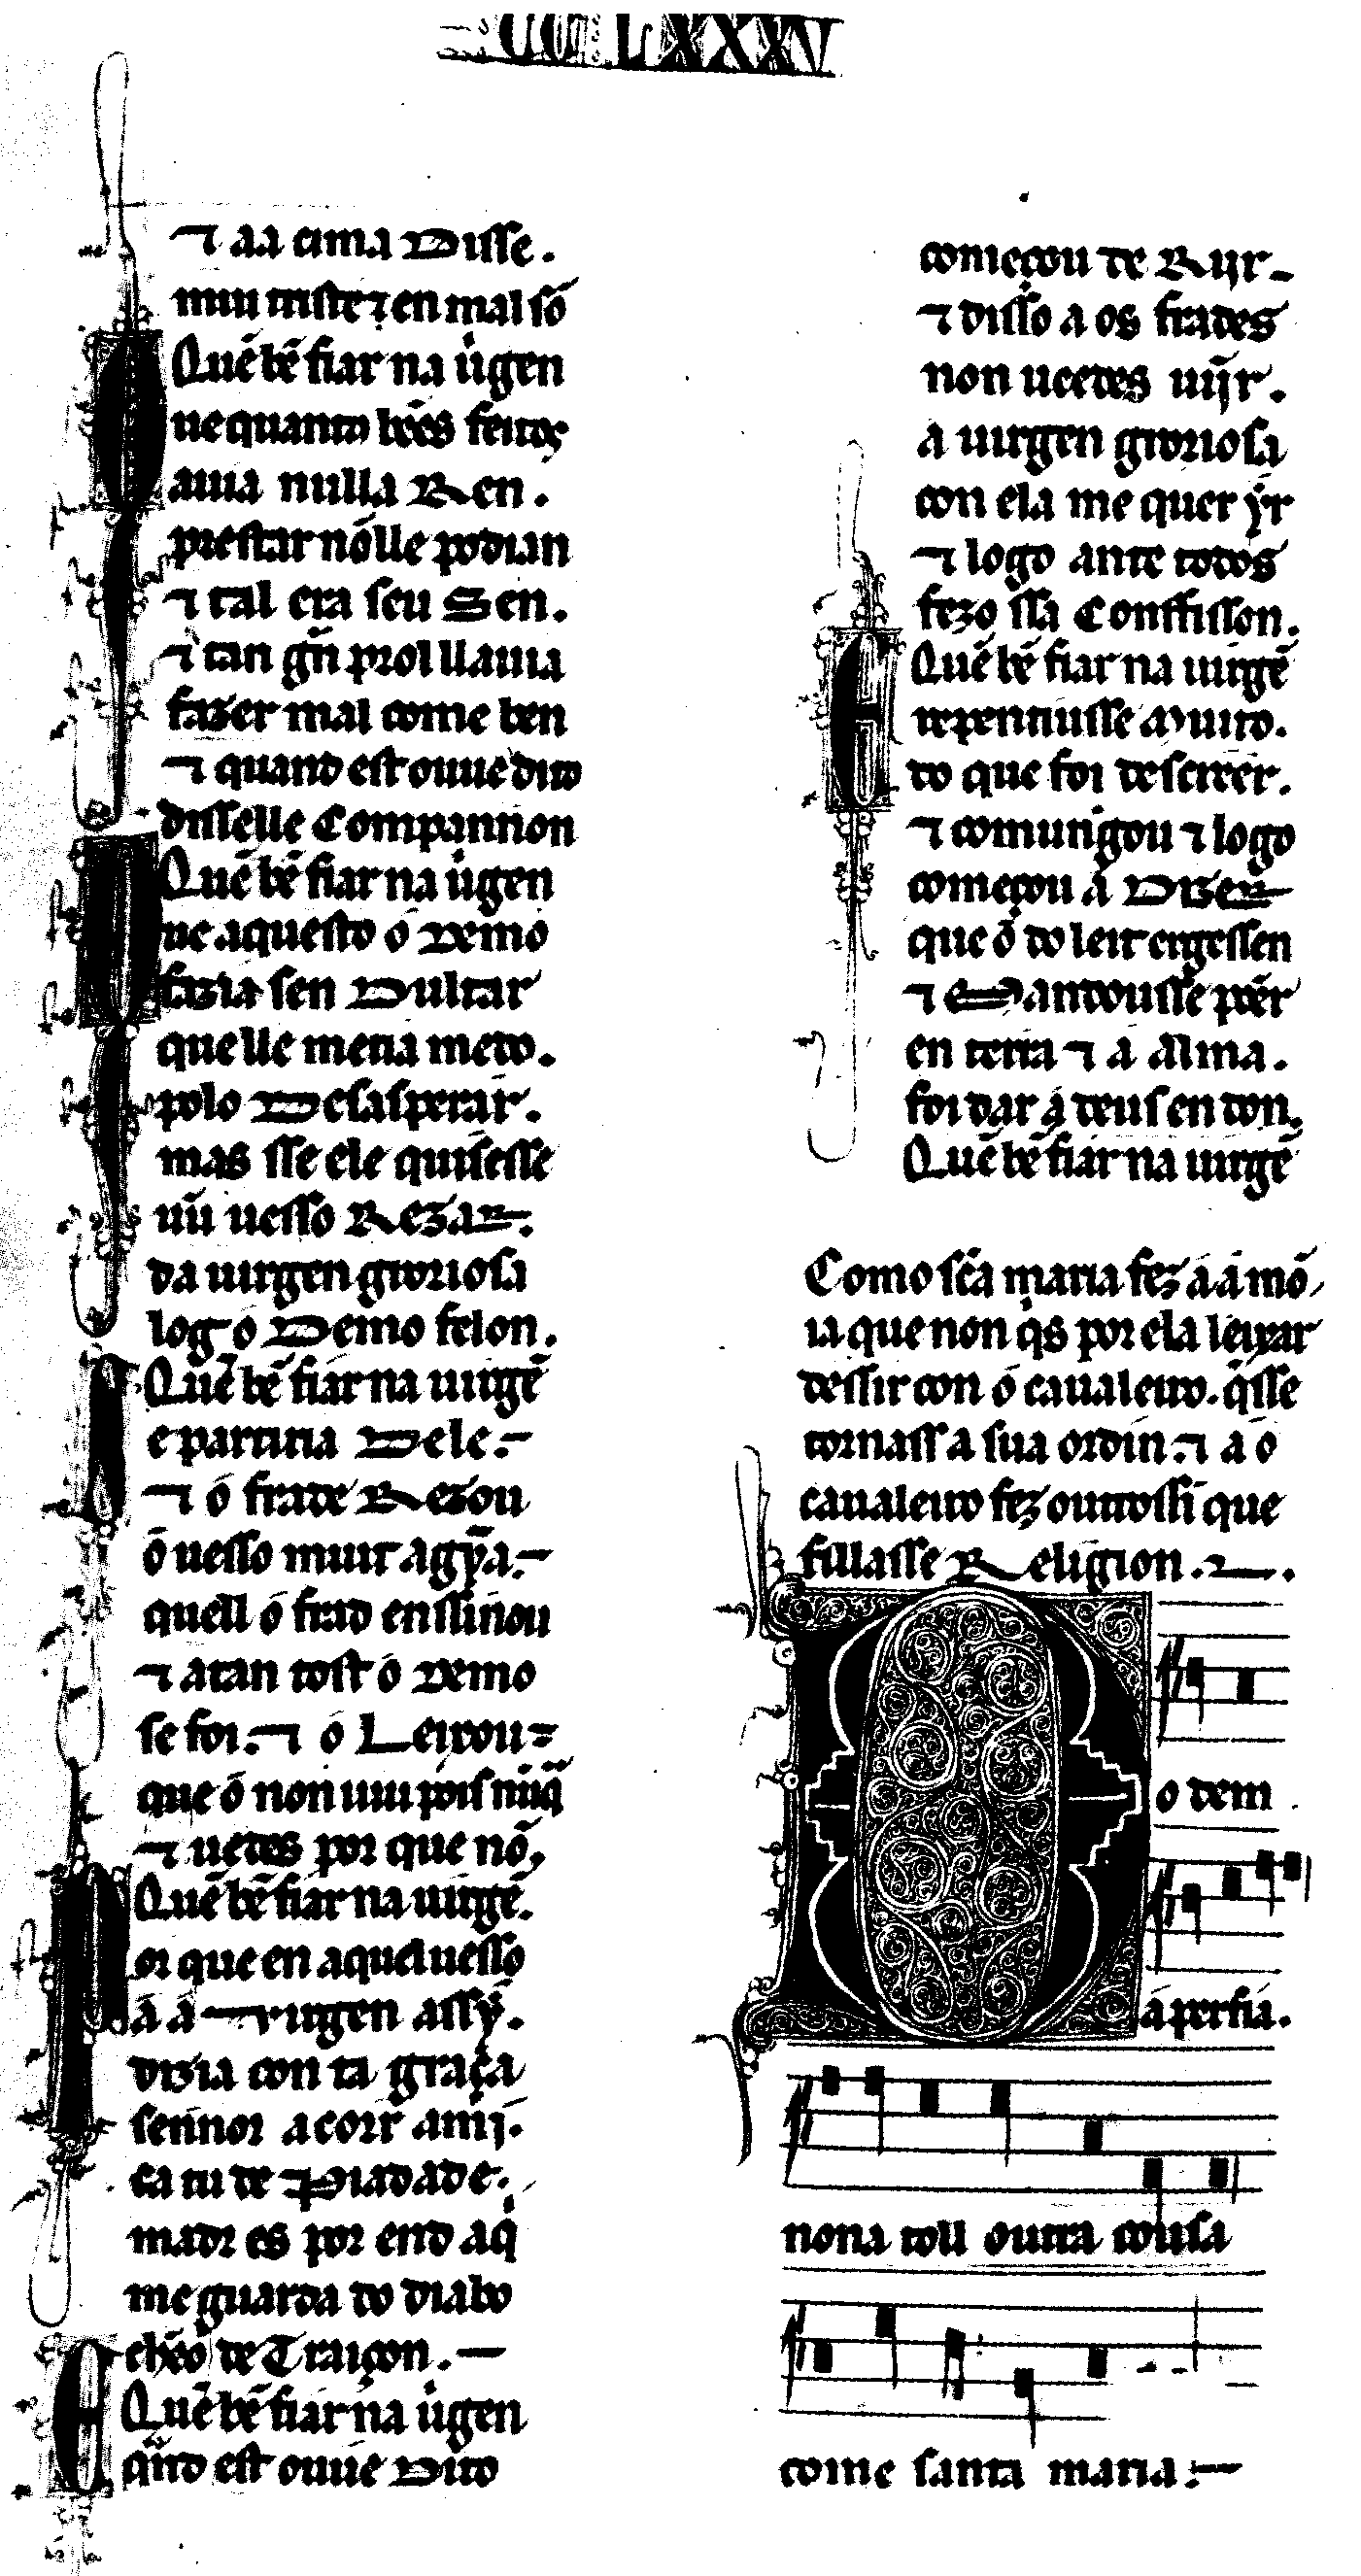 CCLXXXV
⁊ aa cima Disse.
mui triste ⁊ en mal sõ
Quẽ bẽ fiar na uirgen
ue quanto bẽes feitos
auia nulla Ren.
prestar nõ lle podian
⁊ tal era seu Sen.
⁊ tan gñ prol ll auia
fazer mal come ben
⁊ quand est ouue dito
disselle Compannon
Quẽ bẽ fiar na uirgen
ue aquesto o Demo
fazia sen Dultar
que lle metia medo.
polo Desasperar.
mas sse ele quisesse
uũ uesso Rezar.
da uirgen groriosa
log o Demo felon.
Quẽ bẽ fiar na uirgẽ
e partiria Dele.
⁊ o frade Rezou
o uesso muit agỹa.
quell o frad enssinou
⁊ atan tost o Demo
se foi. ⁊ o Leixou
que o non uiu pois nũq̃
⁊ uedes por que nõ,
Quẽ bẽ fiar na uirgẽ.
or que en aquel uesso
á á Uirgen assy.
dizia con ta graça
sennor acorr a mi.
ca tu de Piadade.
madr es por end aq̇
me guarda do diabo
chẽo de Traiçon.
Quẽ bẽ fiar na uirgen
q̃nd est ouue Dito
começou de Riir
⁊ diss o a os frades
non ueedes uĩjr.
a uirgen groriosa
con ela me quer ýr
⁊ logo ante todos
fezo ssa Conffisson.
Quẽ bẽ fiar na uirgẽ
repentiusse Muito.
do que foi descreer.
⁊ comungou ⁊ logo
começou á Dizer
que o do leit ergessen
⁊ Mandousse põer
en terra ⁊ a Alma.
foi dar á deus en don.
Quẽ bẽ fiar na uirgẽ
Como sc̃a maria fez á á mõ,
ia que non q̇s por ela leixar
dessir con o caualeiro. q̇sse
tornass a sua ordin. ⁊ a o
caualeiro fez outrossi que
fillasse Religion.
o dem
á perfia.
nona toll outra cousa
come santa maria: